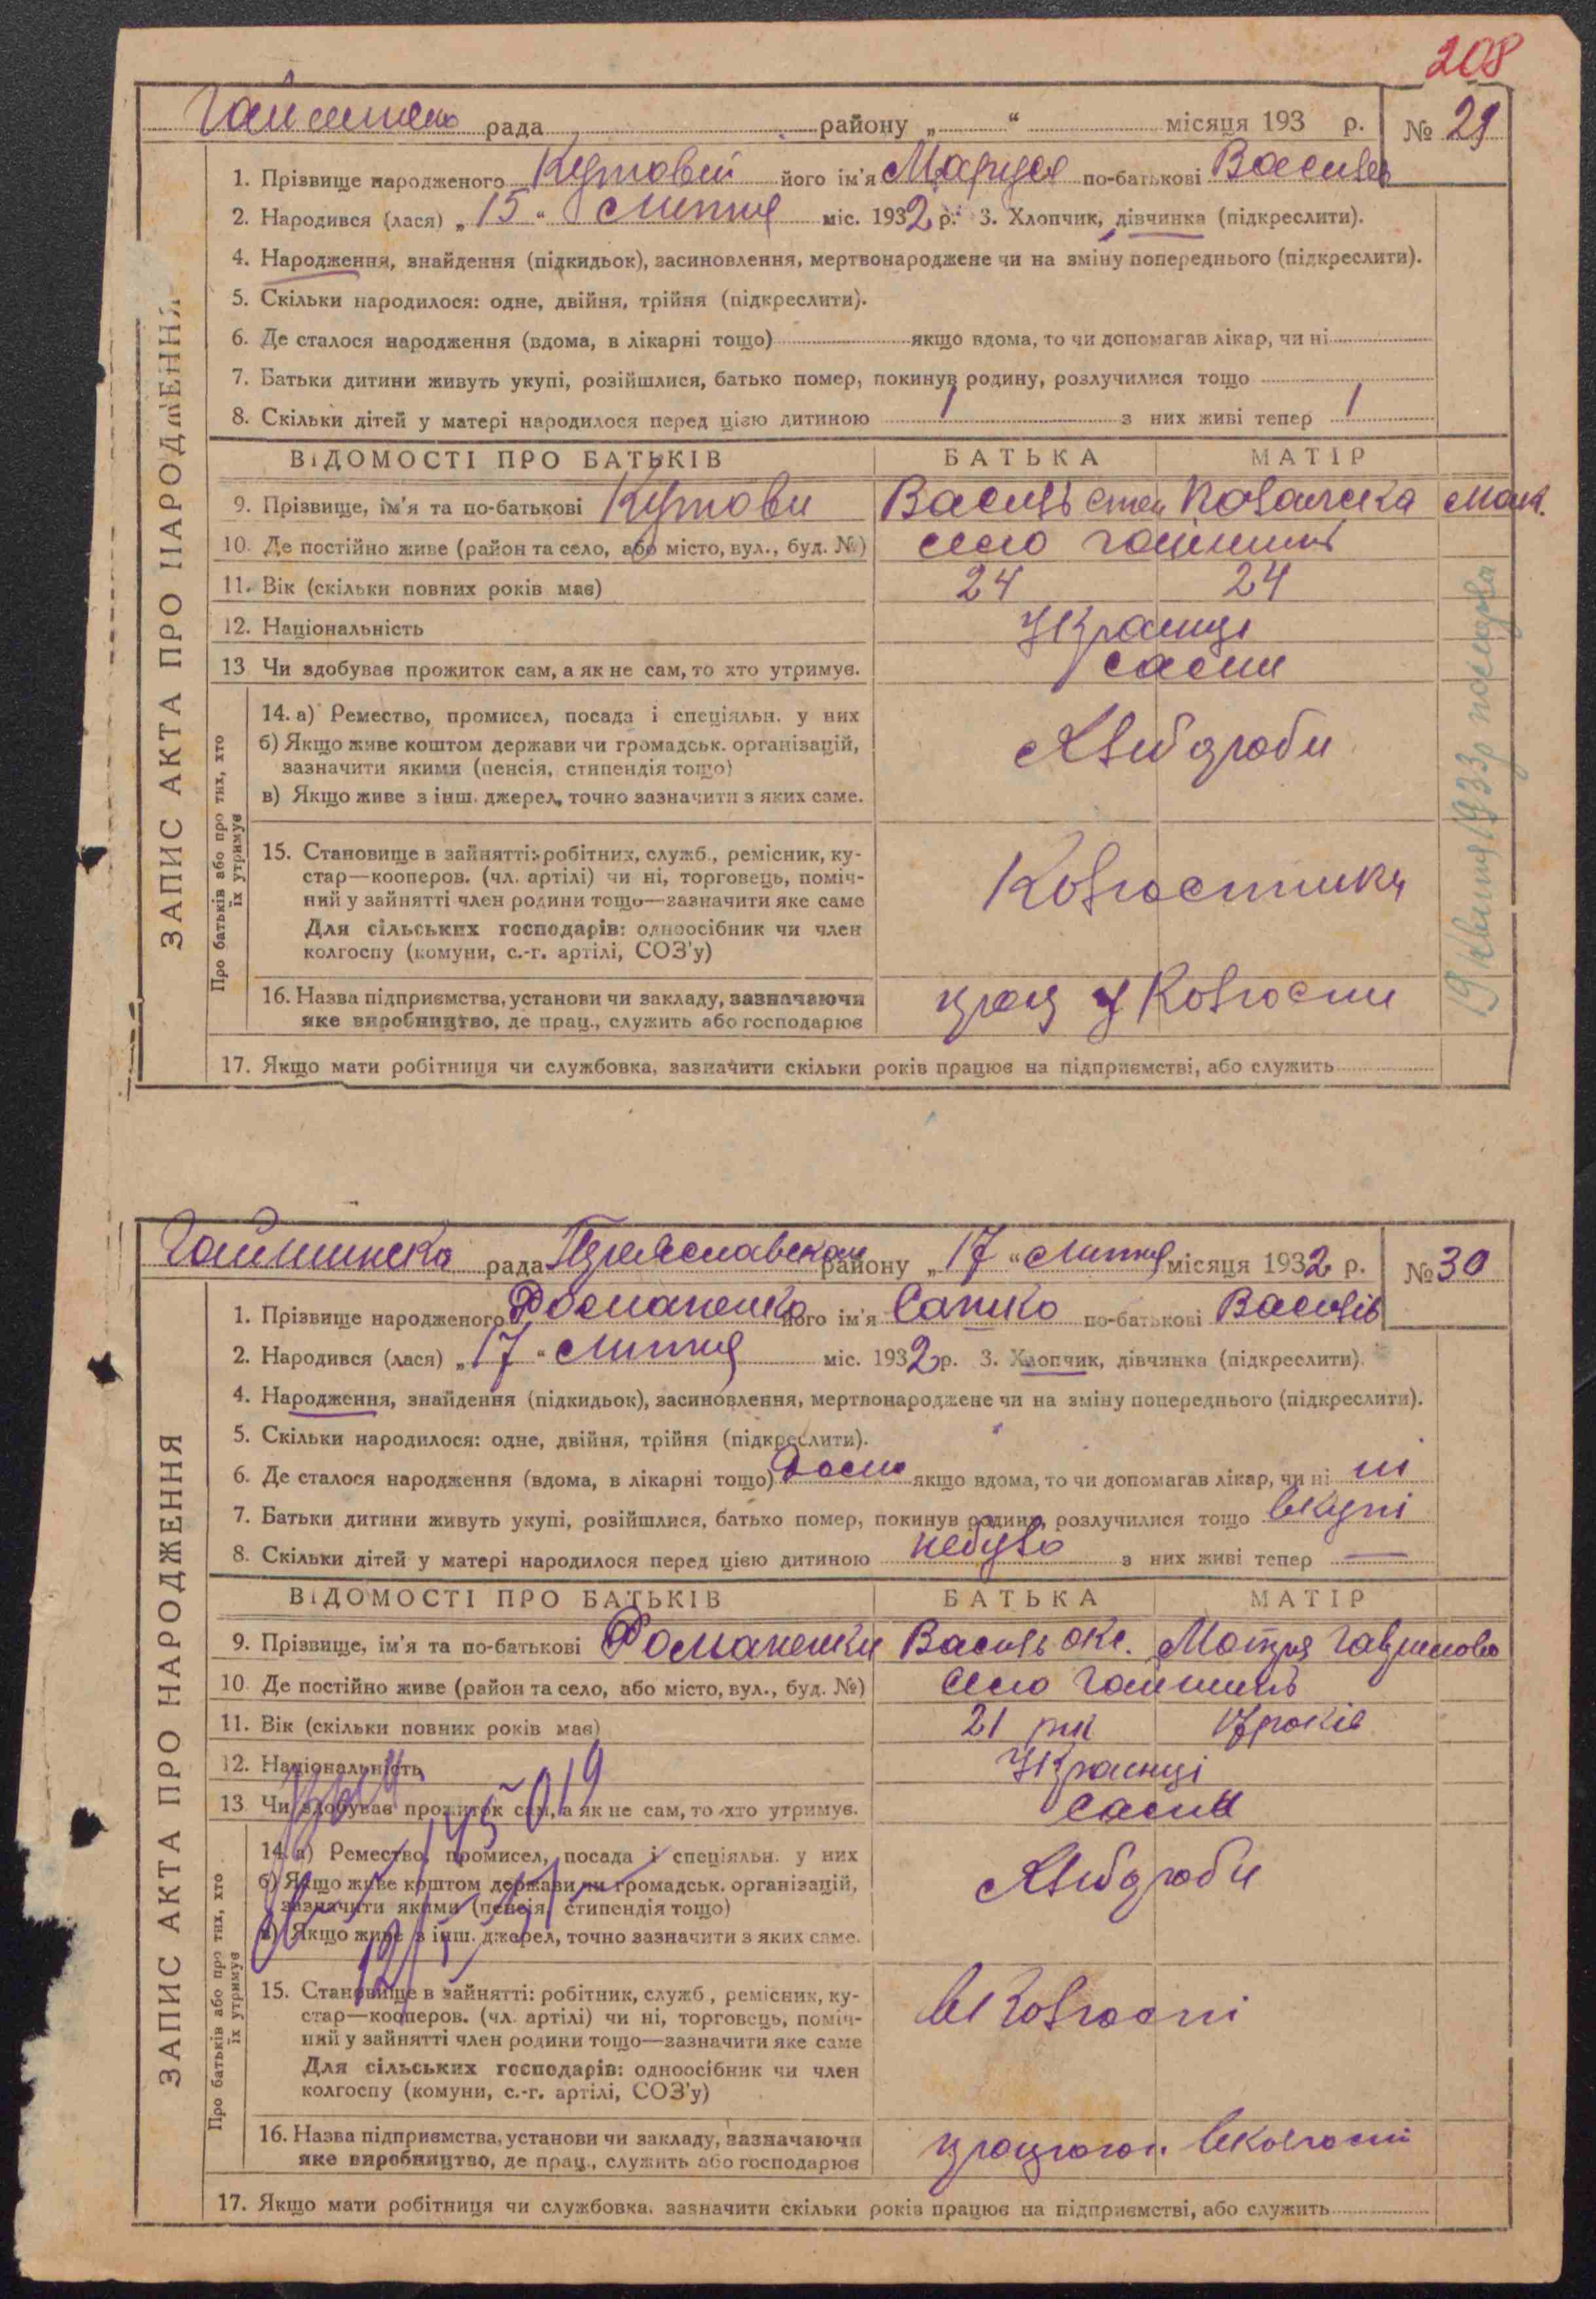 208
рада району „ “ місяця 193 р. № 29
1. Прізвище народженого Кутовей його ім'я Маруся по-батькові Василів
2. Народився (лася) „ 15 “ липня міс. 1932 р. 3. Хлопчик, дівчинка (підкреслити).
4. Народження, знайдення (підкидьок), засиновлення, мертвонароджене чи на зміну попереднього (підкреслити).
5. Скільки народилося: одне, двійня, трійня (підкреслити).
6. Де сталося народження (вдома, в лікарні тощо) якщо вдома, то чи допомагав лікар, чи ні
7. Батьки дитини живуть укупі, розійшлися, батько помер, покинув родину, розлучилися тощо
8. Скільки дітей у матері народилося перед цією дитиною 1 з них живі тепер 1
ВІДОМОСТІ ПРО БАТЬКІВ БАТЬКА МАТІР
9. Прізвище, ім'я та по-батькові Кутови Василь Степ
10. Де постійно живе (район та село, або місто, вул., буд. №) село Гайшинь
11. Вік (скільки повних років має) 24 24
12. Національність Українці
13 Чи здобував прожиток сам, а як не сам, то хто утримує. сами
14. а) Ремество, промисел, посада і спеціяльн. у них
б) Якщо живе коштом держави чи громадськ. організацій,
зазначити якими (пенсія, стипендія тощо)
в) Якщо живе з інш. джерел, точно зазначити з яких саме.
Хлібороби
15. Становище в зайнятті: робітник, служб., ремісник, ку-
стар—кооперов. (чл. артілі) чи ні, торговець, поміч-
ний у зайнятті член родини тощо—зазначити яке саме
Для сільських господарів: одноосібник чи член
колгоспу (комуни, с.-г. артілі, СОЗ'у)
16. Назва підприємства, установи чи закладу, зазначаючи
яке виробництво, де прац., служить або господарює
17. Якщо мати робітниця чи службовка, зазначити скільки років працює на підприємстві, або служить
ЗАПИС АКТА ПРО НАРОДЖЕННЯ
Про батьків або про тих, хто
їх утримує
19 1933р
Гайшинска рада Переяславского району „ 17 “ липня місяця 1932 р. № 30
1. Прізвище народженого Романенко його ім'я Сашко по-батькові Василів
2. Народився (лася) „ 17 “ липня міс. 1932 р. 3. Хлопчик, дівчинка (підкреслити).
4. Народження, знайдення (підкидьок), засиновлення, мертвонароджене чи на зміну попереднього (підкреслити).
5. Скільки народилося: одне, двійня, трійня (підкреслити).
6. Де сталося народження (вдома, в лікарні тощо) Дома якщо вдома, то чи допомагав лікар, чи ні ні
7. Батьки дитини живуть укупі, розійшлися, батько помер, покинув родину, розлучилися тощо вкупі
8. Скільки дітей у матері народилося перед цією дитиною небуло з них живі тепер —
ВІДОМОСТІ ПРО БАТЬКІВ БАТЬКА МАТІР
9. Прізвище, ім'я та по-батькові Романенки Василь Окс. Мотря Гаврилова
10 Де постійно живе (район та село, або місто, вул., буд. №) село Гайшинь
11. Вік (скільки повних років має) 21 рік 17 років
12. Національність Українці
13 Чи здобував прожиток сам, а як не сам, то хто утримує. сами
14. а) Ремество, промисел, посада і спеціяльн. у них
б) Якщо живе коштом держави чи громадськ. організацій,
зазначити якими (пенсія, стипендія тощо)
в) Якщо живе з інш. джерел, точно зазначити з яких саме.
Хлібороби
15. Становище в зайнятті: робітник, служб., ремісник, ку-
стар—кооперов. (чл. артілі) чи ні, торговець, поміч-
ний у зайнятті член родини тощо—зазначити яке саме
Для сільських господарів: одноосібник чи член
колгоспу (комуни, с.-г. артілі, СОЗ'у)
вколгоспі
16. Назва підприємства, установи чи закладу, зазначаючи
яке виробництво, де прац., служить або господарює
вколгоспі
17. Якщо мати робітниця чи службовка, зазначити скільки років працює на підприємстві, або служить
ЗАПИС АКТА ПРО НАРОДЖЕННЯ
Про батьків або про тих, хто
їх утримує